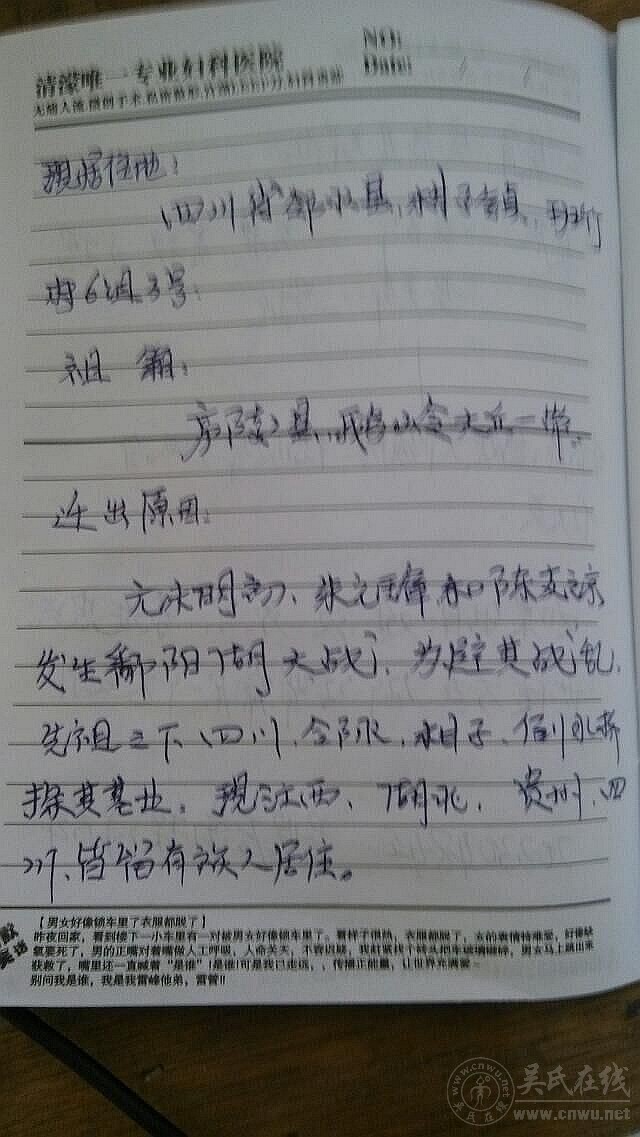 清濛唯一专业妇科医院
NO:
Date: / /
无痛人流.微创手术.私密整形.宫颈LEEP刀.妇科内分泌
现居住地：
四川省邻水县、柑子镇、
村6组3号
祖籍：
庐陵县、大丘一带。
迁出原因：
元末明初、朱元璋和陈友谅
发生鄱阳湖大战、为避其战乱、
先祖三下四川、合阳、柑子、
操其基业。现江西、湖北、贵州、四
川、皆留有族人居住。
【男女好像锁车里了衣服都脱了】
昨夜回家，看到楼下一小车里有一对被男女好像锁车里了。看样子很热，衣服都脱了，女的表情特难受，好像缺
氧要死了，男的正嘴对着嘴做人工呼吸，人命关天，不容迟疑，我赶紧找个砖头把车玻璃砸碎，男女马上跳出来
获救了，嘴里还一直喊着“是谁”!是谁!可是我已走远，，传播正能量，让世界充满爱
别问我是谁，我是我雷峰他弟，雷管!!
吴氏在线
www.cnwu.net